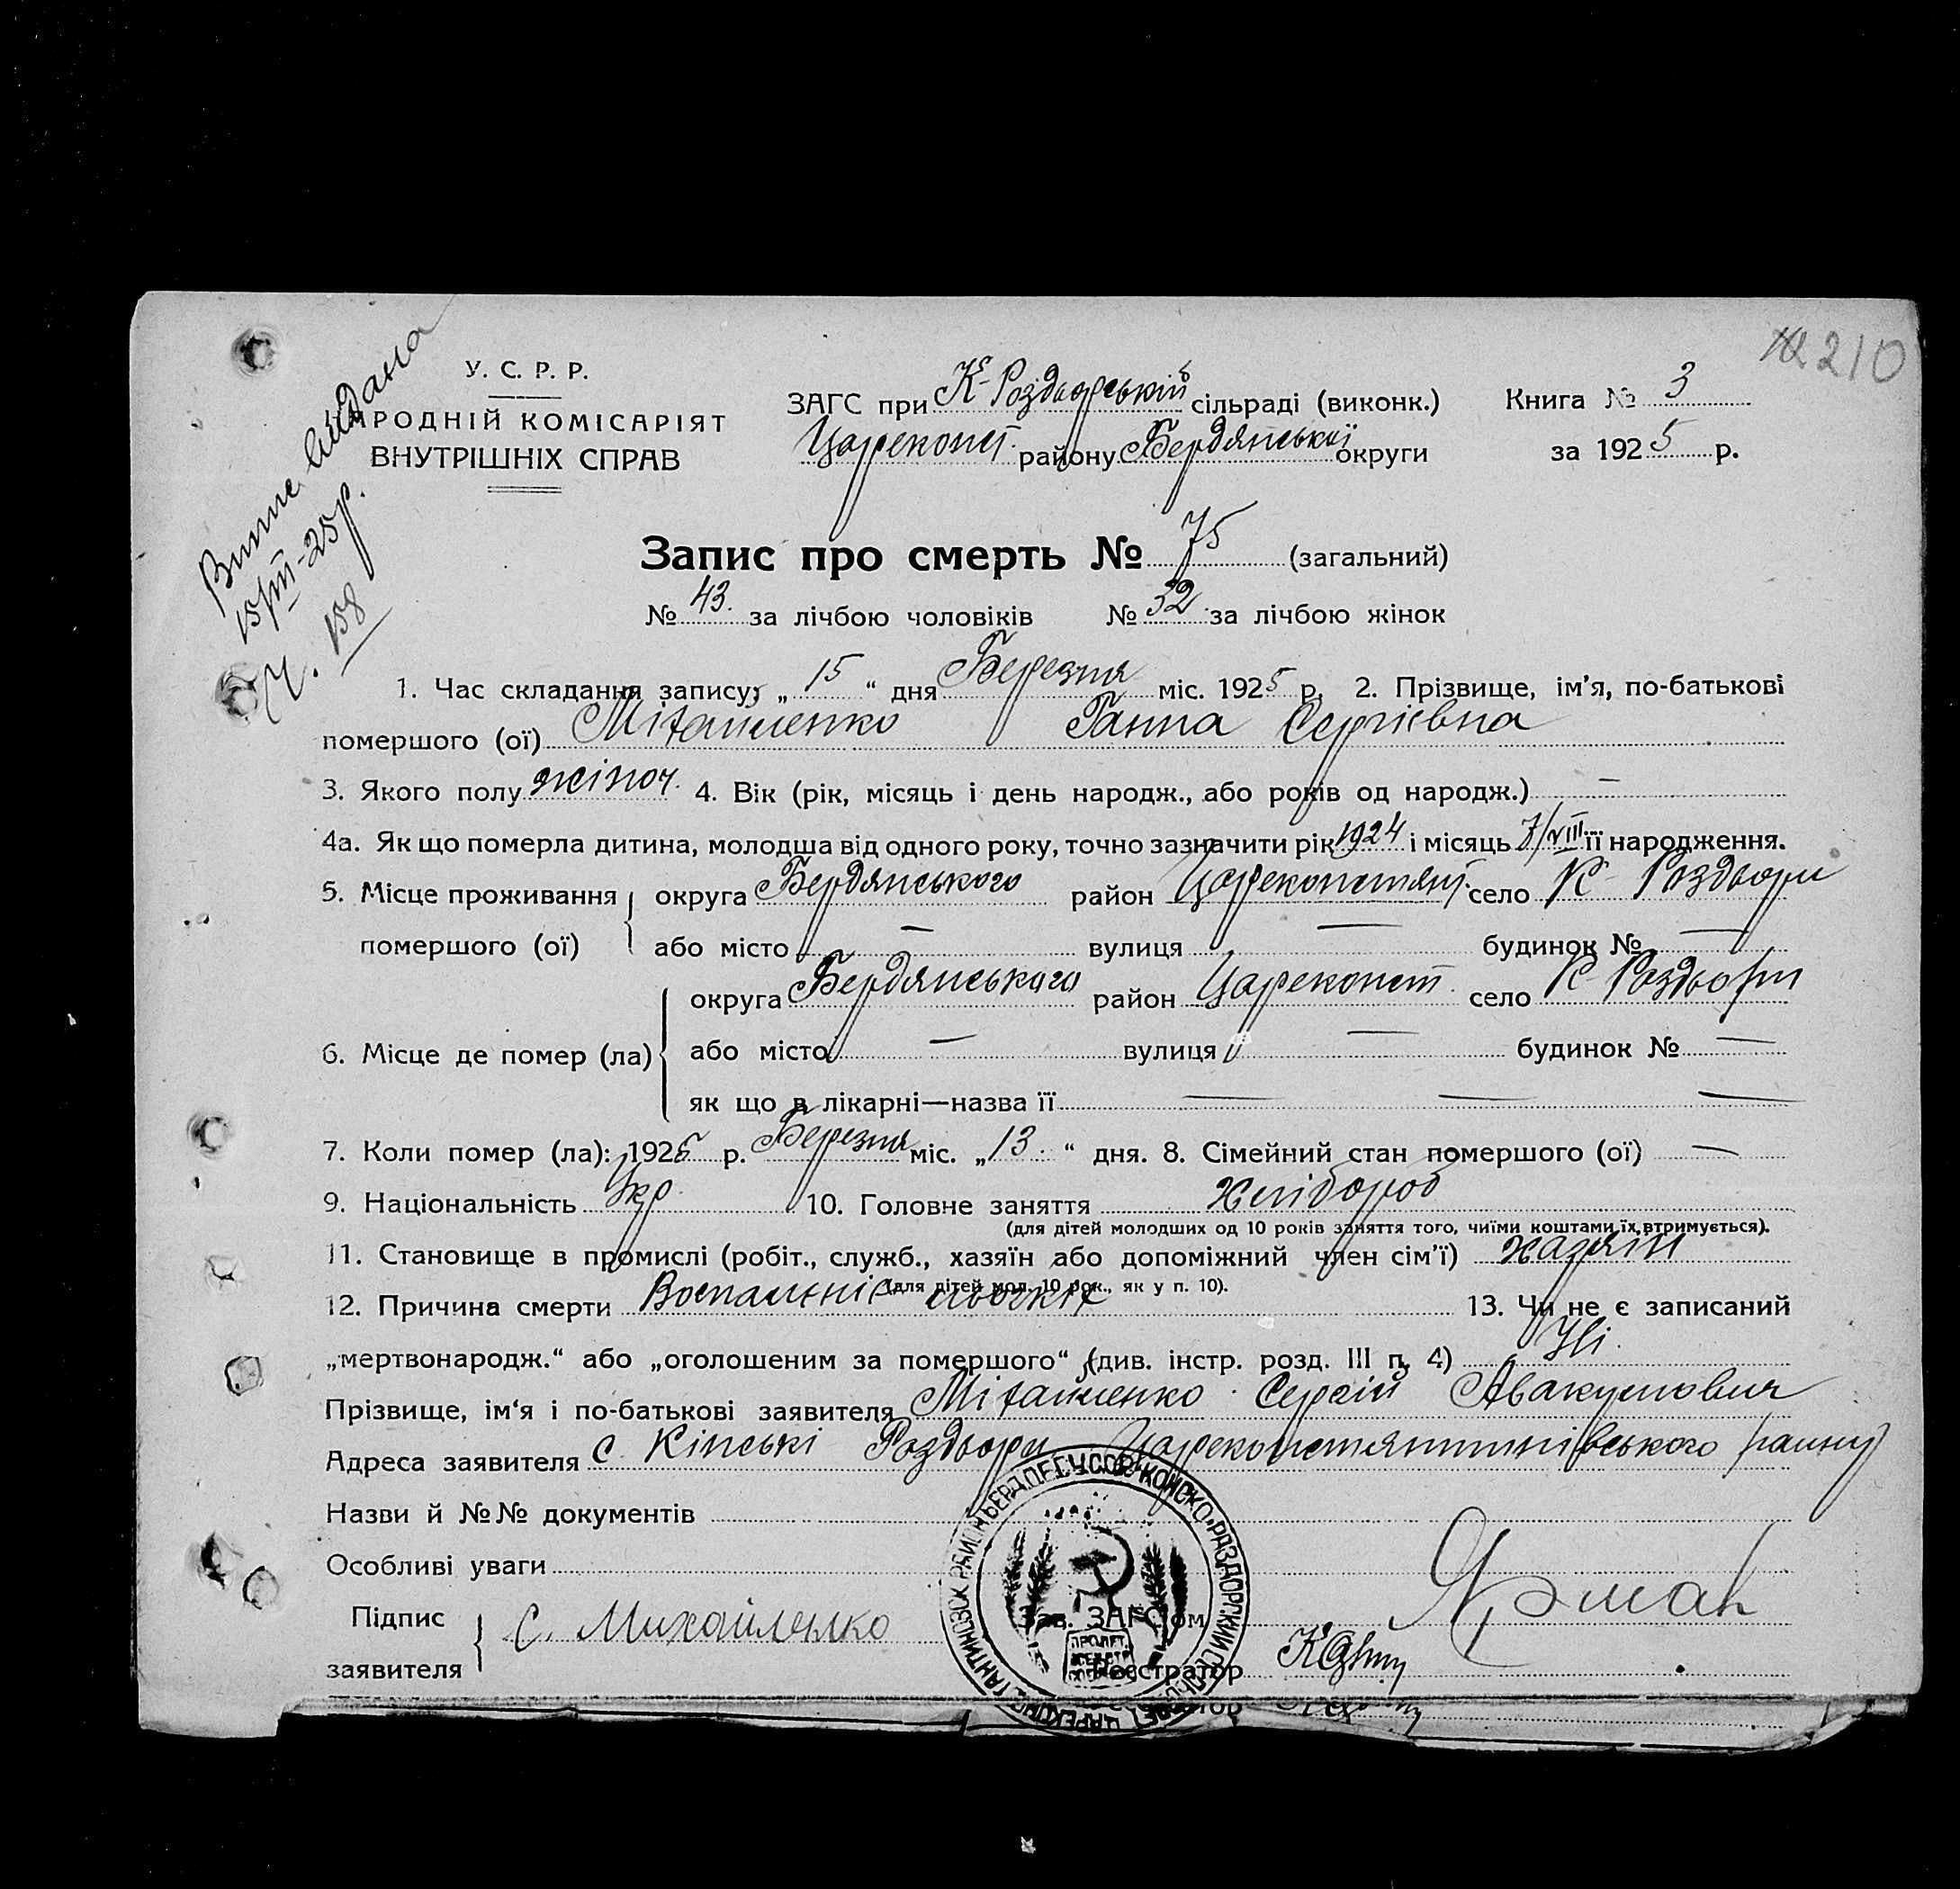 № 210
Випис видана
15/III-25р.
Ч. 158
У. С. Р. Р.
НАРОДНІЙ КОМІСАРІЯТ
ВНУТРІШНІХ СПРАВ
ЗАГС при К-Роздорській сільраді (виконк.)
Цареконст. району Бердянської округи
Книга № 3
за 1925 р.
Запис про смерть № 75 (загальний)
№ 43. за лічбою чоловіків № 32. за лічбою жінок
1. Час складання запису; „15“ дня Березня міс. 1925 р. 2. Прізвище, ім’я, по-батькові
помершого (ої) Міхайленко Ганна Сергієвна
3. Якого полу жіноч. 4. Вік (рік, місяць і день народж., або років од народж.) —
4а. Як що померла дитина, молодша від одного року, точно зазначити рік 1924 і місяць 7/VIII її народження.
5. Місце проживання помершого (ої)
округа Бердянського район Цареконстянт. село К- Роздори
або місто — вулиця — будинок № —
6. Місце де помер (ла)
округа Бердянського район Цареконст. село К- Роздори
або місто — вулиця — будинок № —
як що в лікарні—назва її — — —
7. Коли помер (ла): 1925 р. Березня міс. „13.“ дня. 8. Сімейний стан помершого (ої) —
9. Національність Укр. 10. Головне заняття Хлібороб
(для дітей молодших од 10 років заняття того, чиїми коштами їх втримується).
11. Становище в промислі (робіт., служб., хазяїн або допоміжний член сім’ї) хазяїн
(для дітей мол. 10 рок., як у п. 10).
12. Причина смерти Воспаленіє льогких 13. Чи не є записаний
„мертвонародж.“ або „оголошеним за помершого“ (див. інстр. розд. III п. 4) Ні.
Прізвище, ім‘я і по-батькові заявителя Міхайленко Сергій Авакумович
Адреса заявителя с. Кінські Роздори Цареконстянтинівського району
Назви й №№ документів
Особливі уваги
Підпис заявителя С. Михайленко
Зав. ЗАГС‘ом
Реєстратор